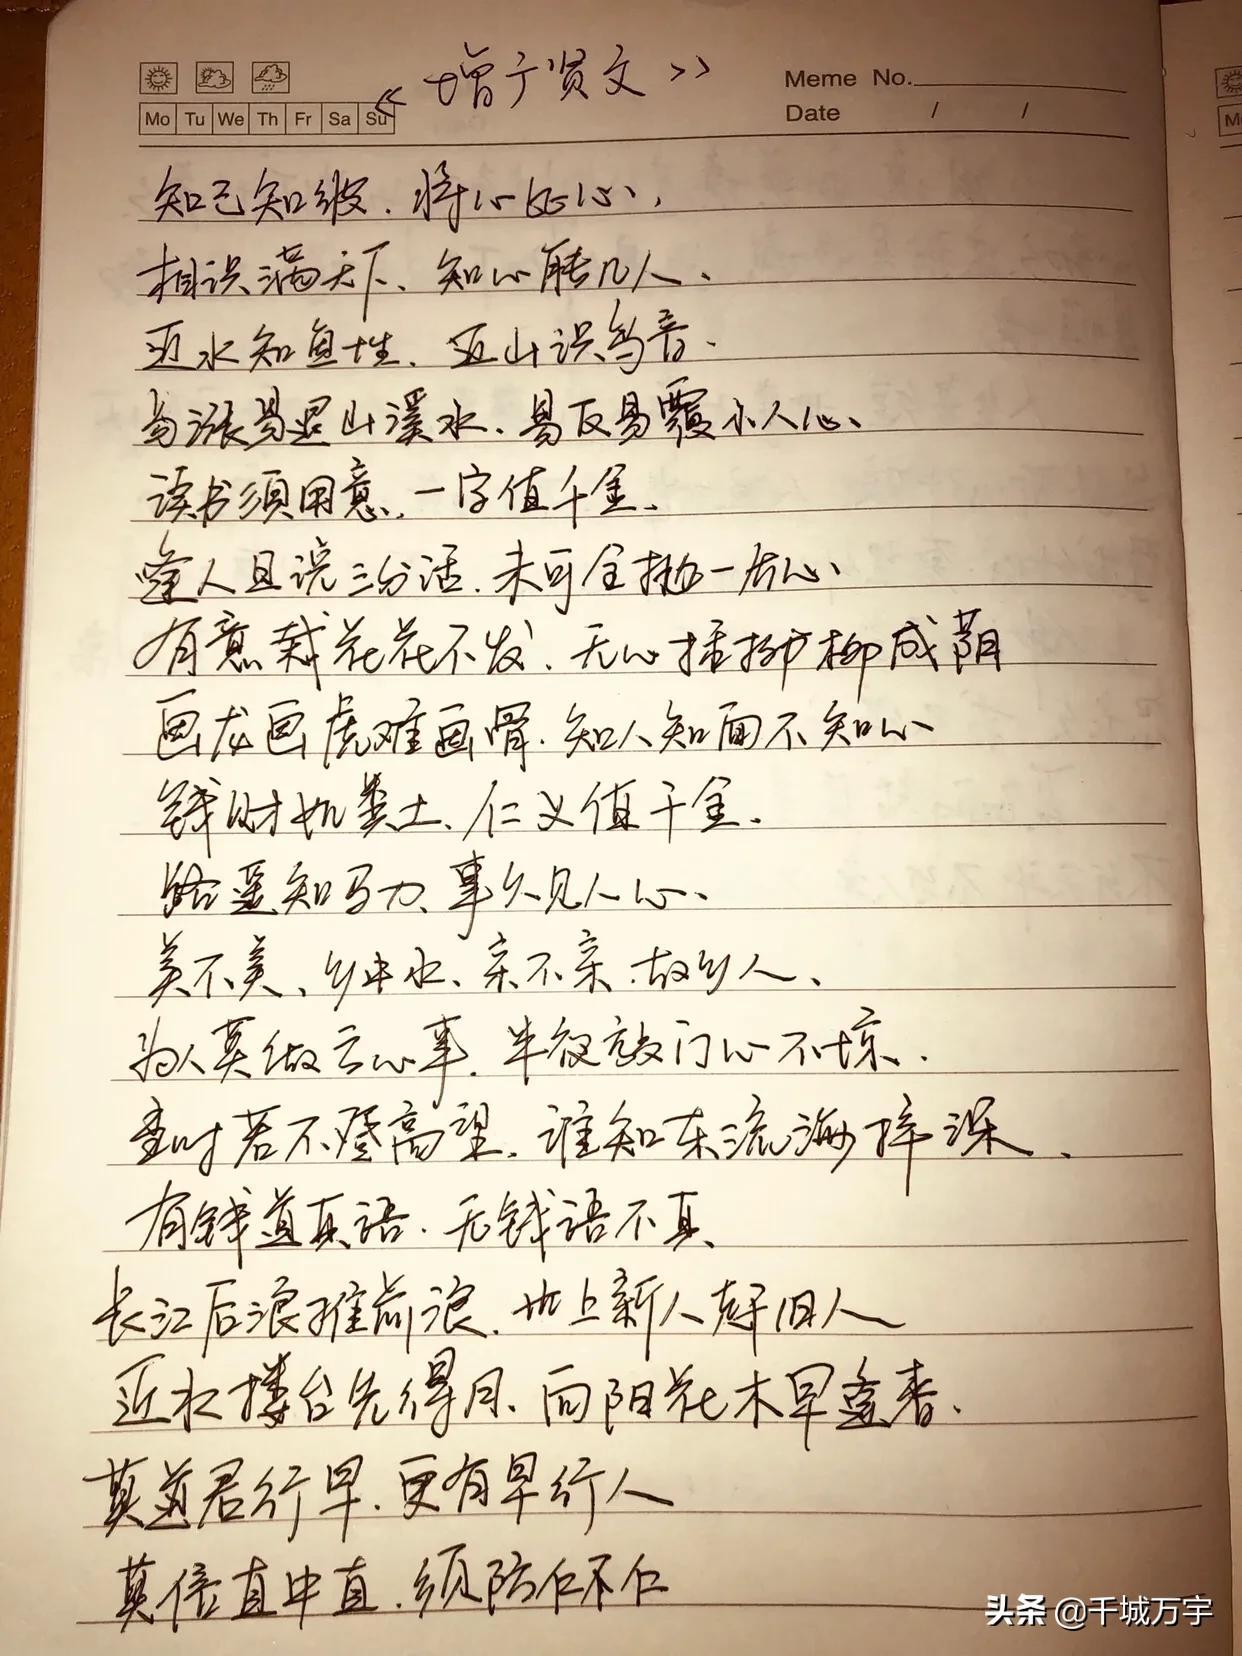 《增广贤文》
Meme No.
Mo Tu We Th Fr Sa Su
Date / /
知己知彼.将心比心,
相识满天下、知心能几人、
近水知鱼性.近山识鸟音.
易涨易退山溪水.易反易覆小人心、
读书须用意,一字值千金、
逢人且说三分话.未可全抛一片心、
有意栽花花不发.无心插柳柳成荫
画龙画虎难画骨.知人知面不知心
钱财如粪土、仁义值千金.
路遥知马力、事久见人心、
美不美、乡中水、亲不亲.故乡人、
为人莫做亏心事.半夜敲门心不惊.
当时若不登高望.谁知东流海样深、
有钱道真语.无钱语不真
长江后浪推前浪.世上新人赶旧人
近水楼台先得月、向阳花木早逢春.
莫道君行早.更有早行人
莫信直中直.须防仁不仁
头条 @千城万宇